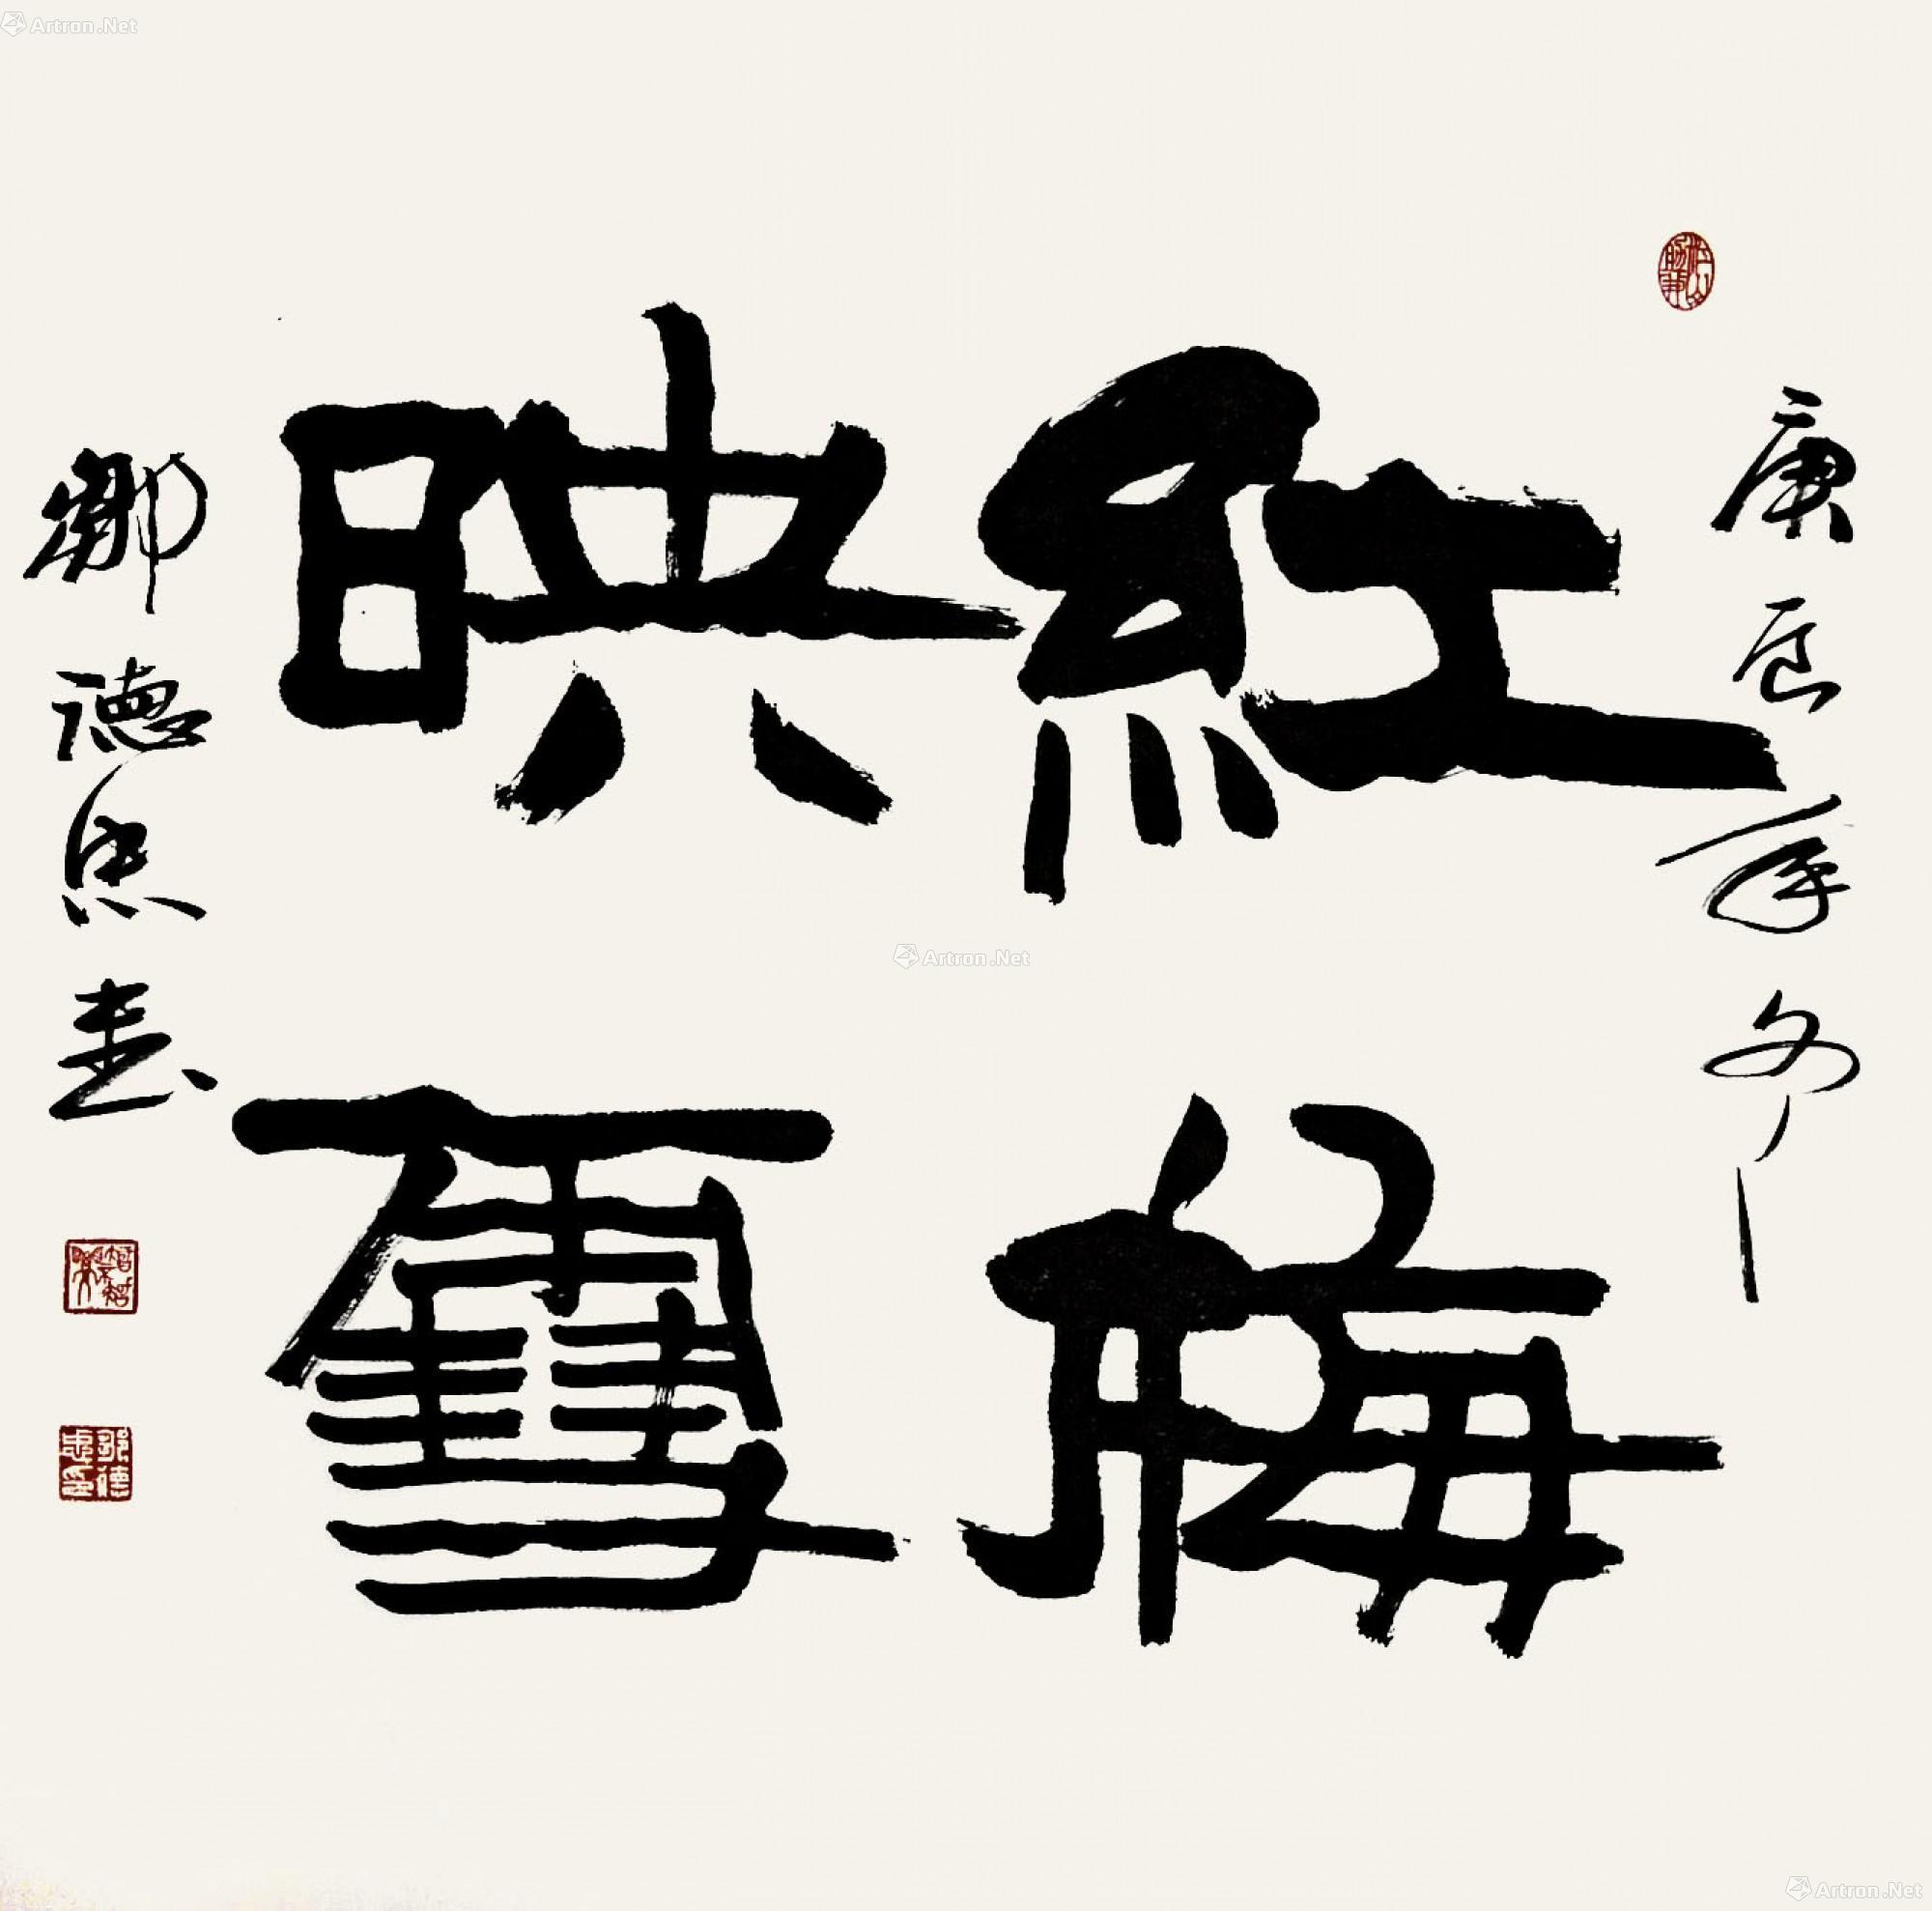 庚辰年冬
紅梅
映雪
鄒德忠書
鄒德忠印
Artron.Net
Artron.Net
Artron.Net